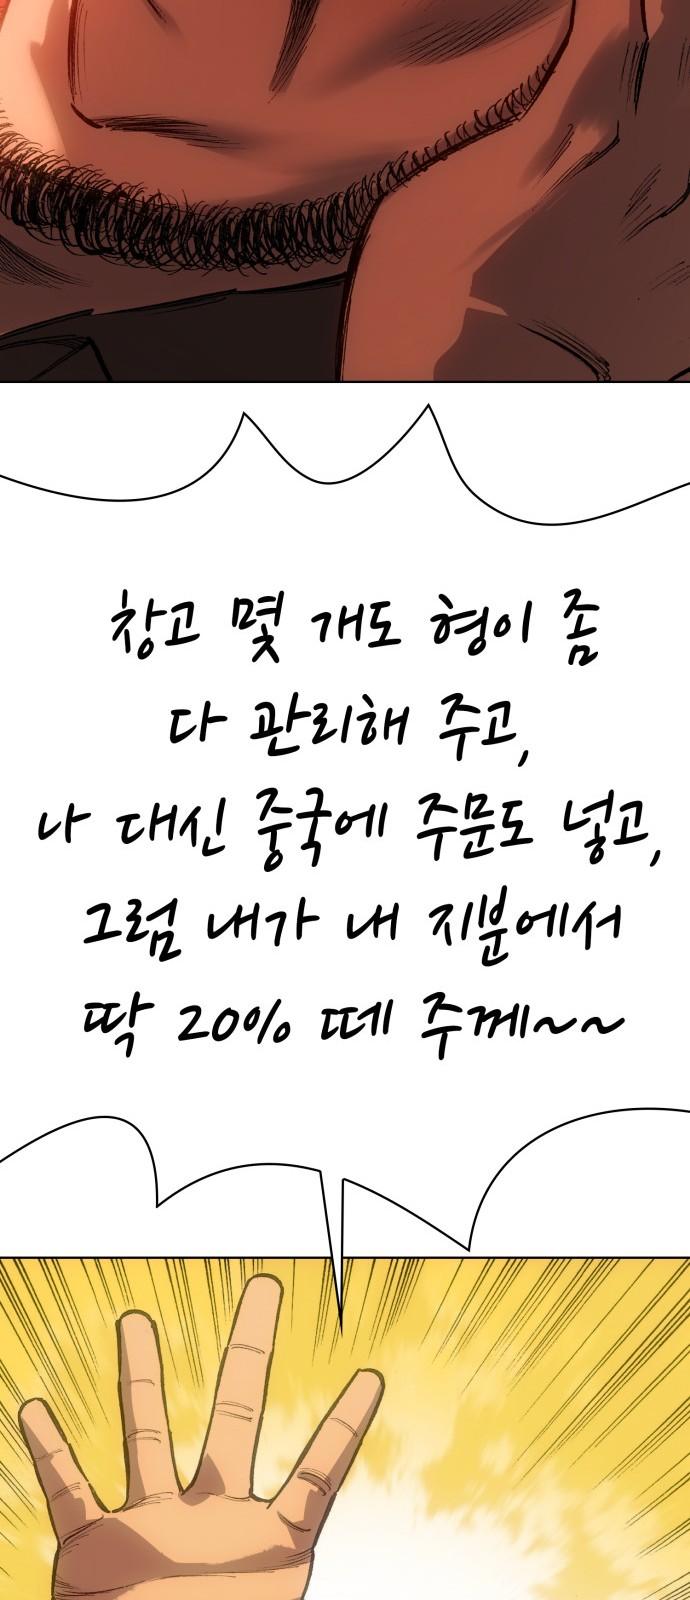 창고 몇 개도 형이 좀
다 관리해 주고,
나 대신 중국에 주문도 넣고,
그럼 내가 내 지분에서
딱 20% 떼 주께~~